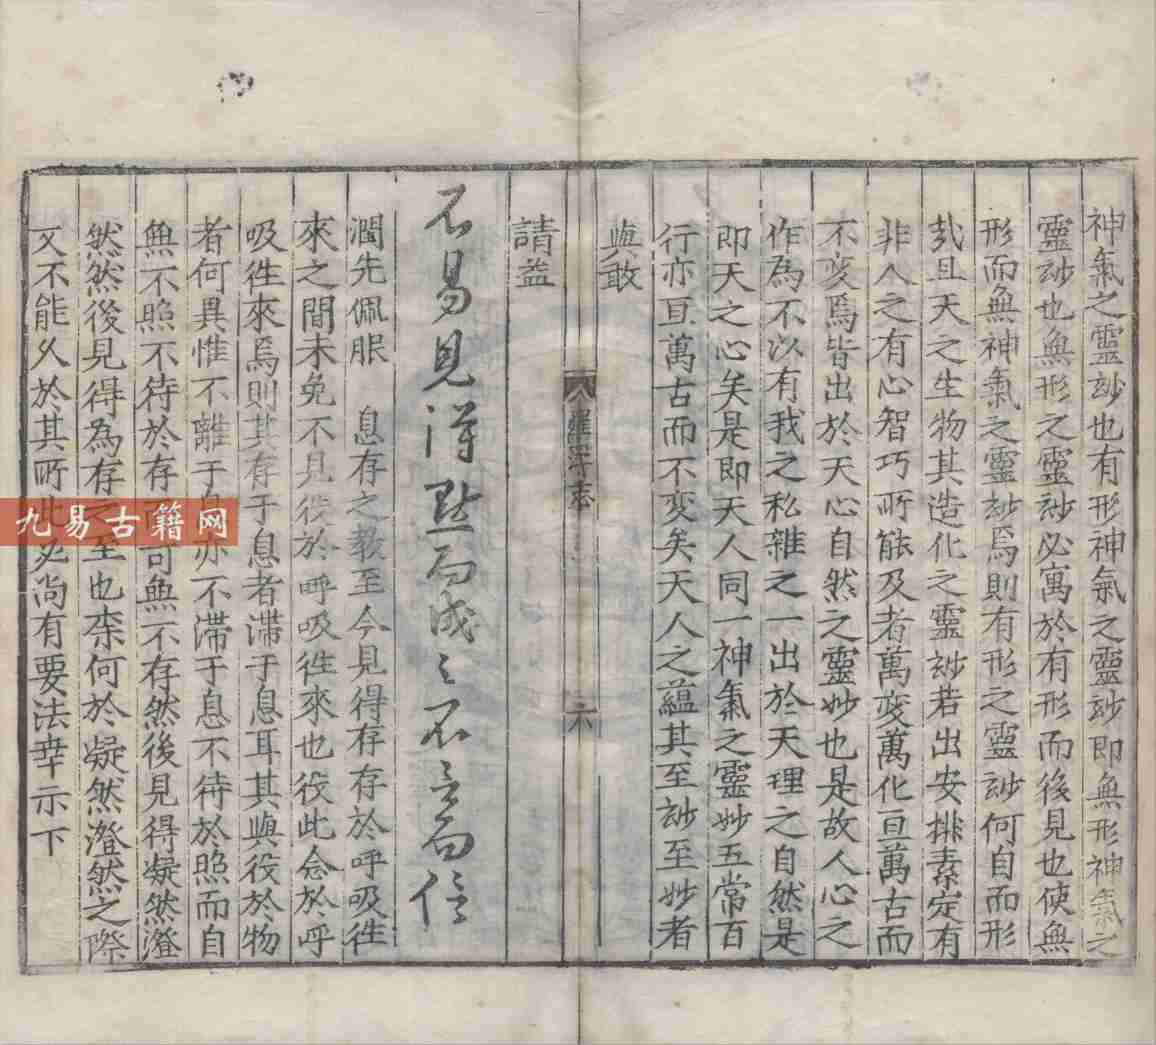 神氣之靈玅也有形神氣之靈玅即無形神氣之
靈玅也無形之靈玅必寓於有形而後見也使無
形而無神氣之靈玅焉則有形之靈玅何自而形
㢤且天之生物其造化之靈玅若出安排素定有
非人之有心智巧所能及者萬变萬化亘萬古而
不变焉皆出於天心自然之靈妙也是故人心之
作為不以有我之私雜之一出於天理之自然是
即天之心矣是即天人同一神氣之靈妙五常百
行亦亘萬古而不变矣天人之蘊其至玅至妙者
與敢
六
請益
不易見得默而成之不言而信
濶先佩服 息存之教至今見得存存於呼吸徃
來之間未免不見役於呼吸徃來也役此念於呼
吸徃來焉則其存于息者滯于息耳其與役於物
者何異惟不離于息亦不滯于息不待於照而自
無不照不待於存而可無不存然後見得凝然澄
然然後見得為存之至也柰何於凝然澄然之際
又不能久於其所此必尚有要法幸示下
九易古籍网